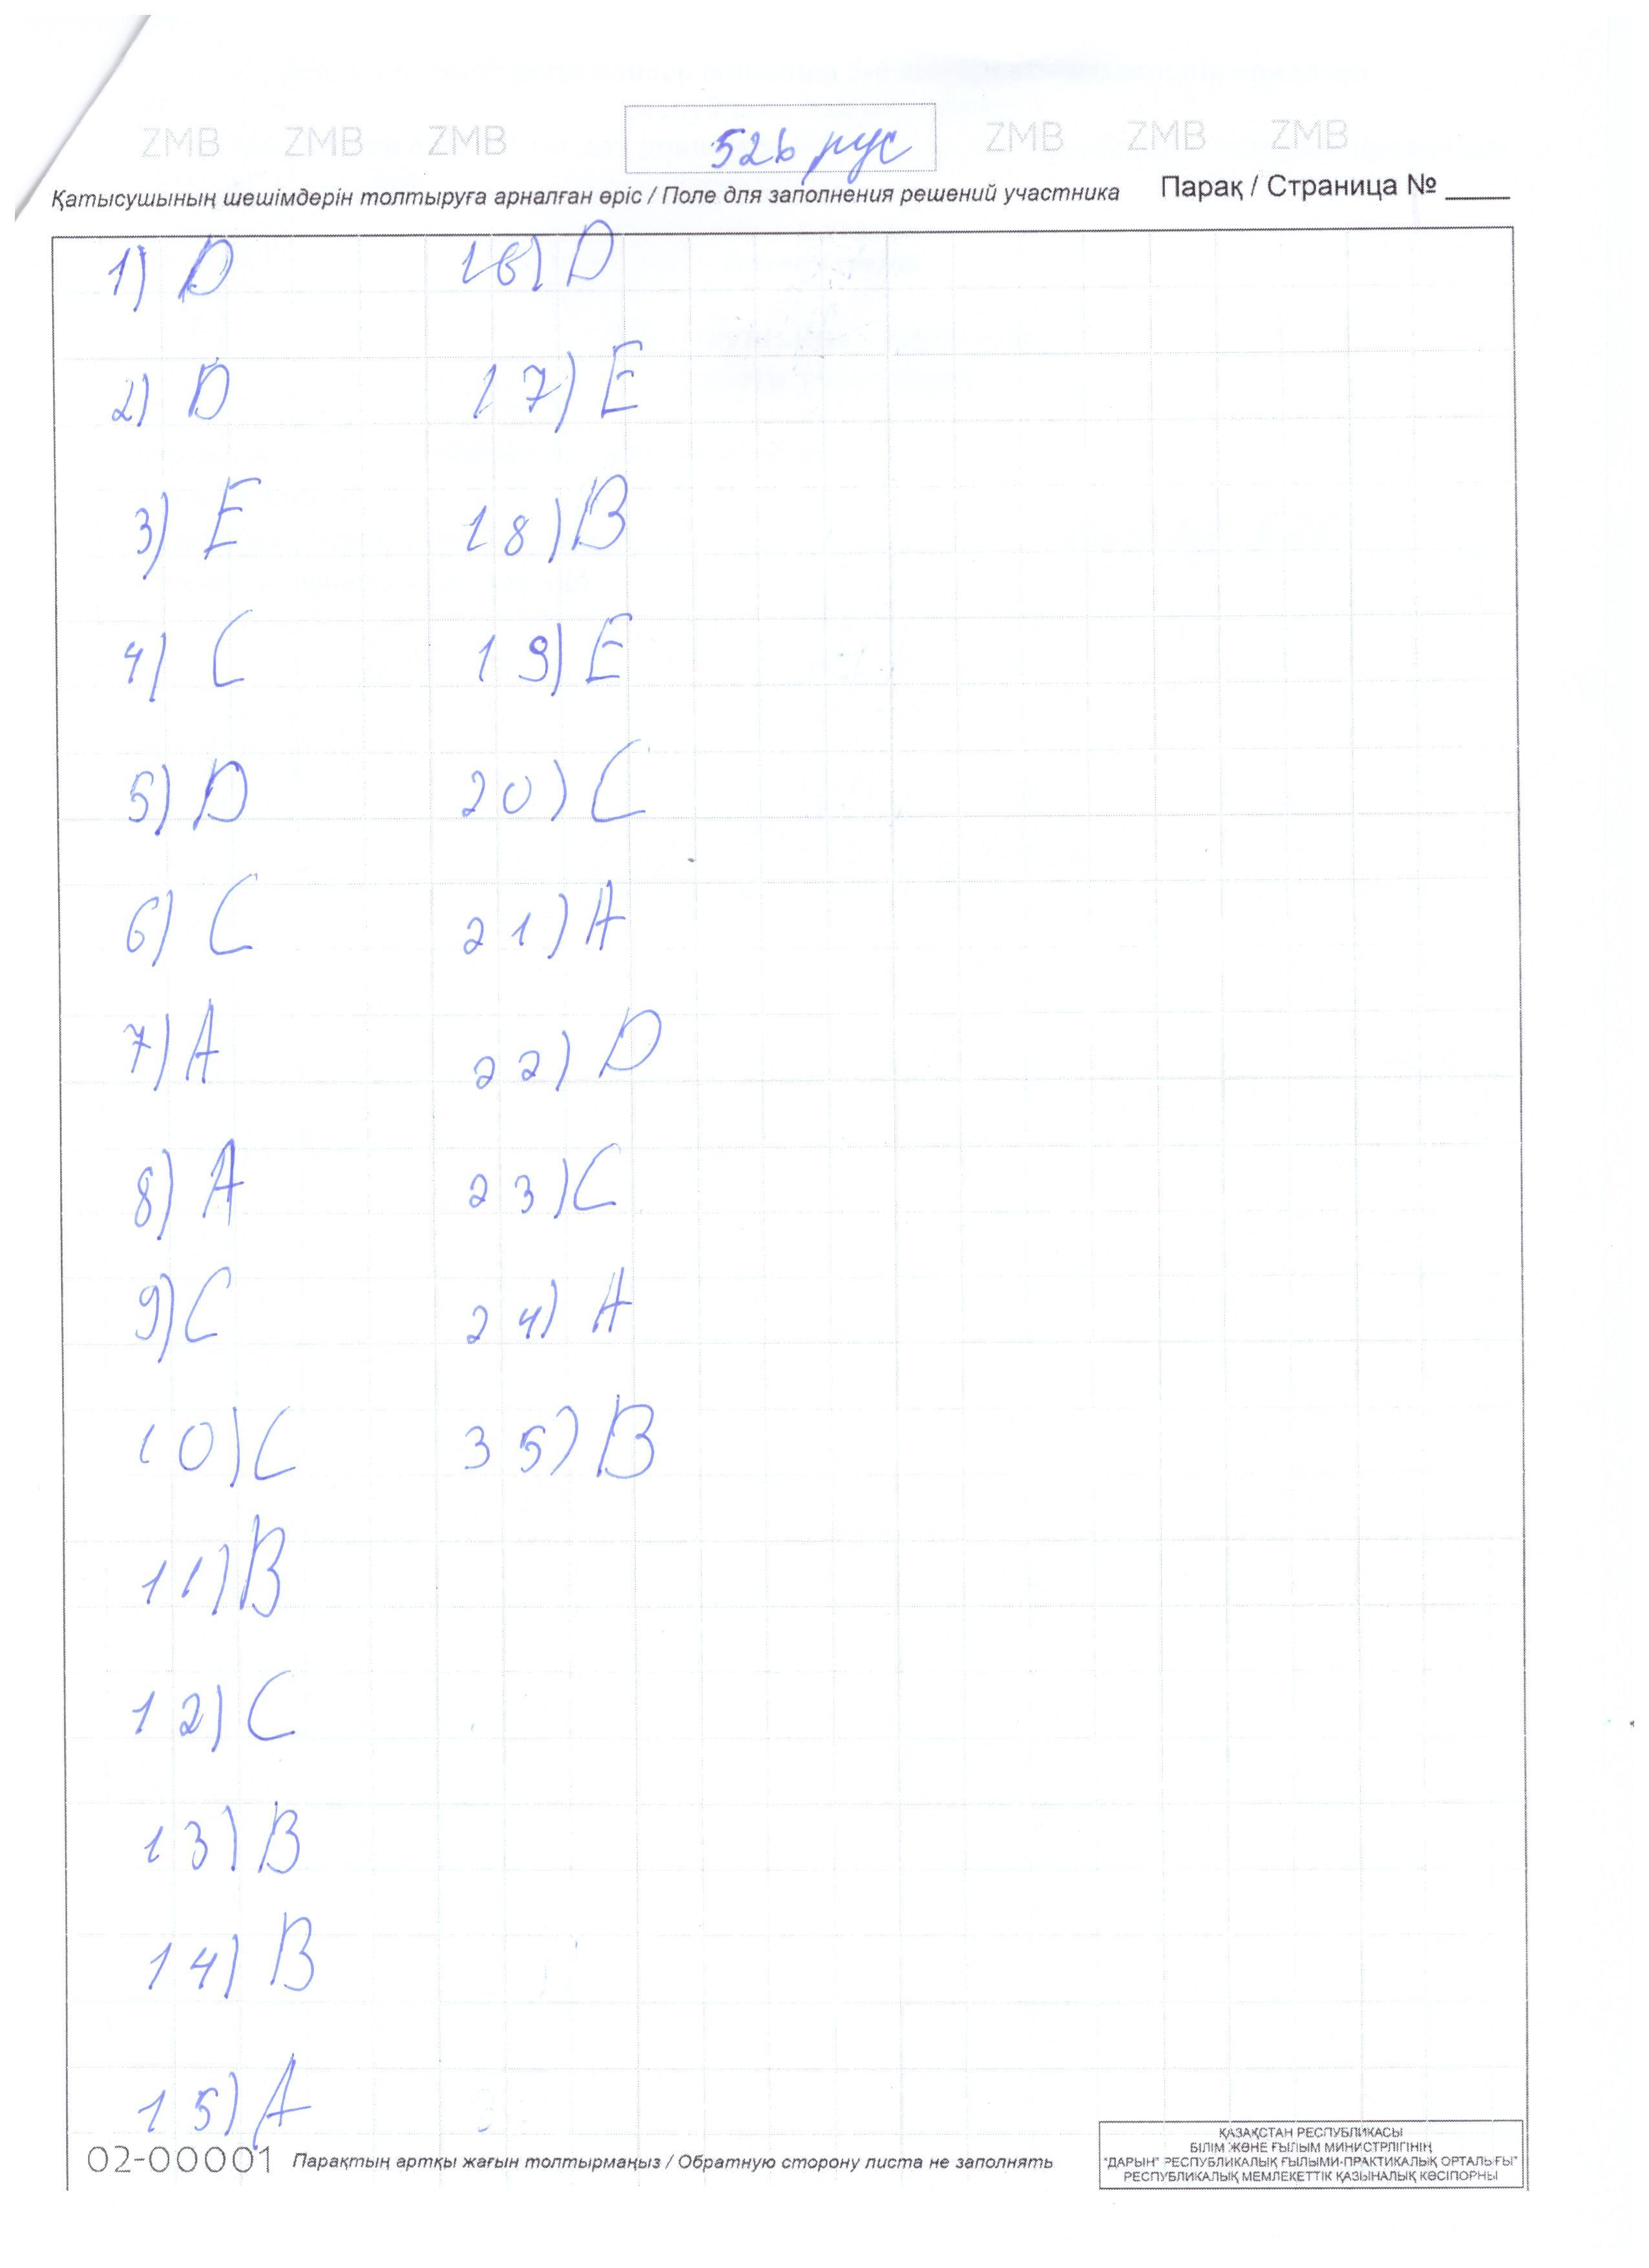 ZMB ZMB ZMB 526 рус ZMB ZMB ZMB
Қатысушының шешімдерін толтыруға арналған өріс / Поле для заполнения решений участника Парақ / Страница № ____
1) D
2) D
3) E
4) C
5) D
6) C
7) A
8) A
9) C
10) C
11) B
12) C
13) B
14) B
15) A
16) D
17) E
18) B
19) E
20) C
21) A
22) D
23) C
24) A
35) B
02-00001 Парақтың артқы жағын толтырмаңыз / Обратную сторону листа не заполнять
ҚАЗАҚСТАН РЕСПУБЛИКАСЫ
БІЛІМ ЖӘНЕ ҒЫЛЫМ МИНИСТРЛІГІНІҢ
"ДАРЫН" РЕСПУБЛИКАЛЫҚ ҒЫЛЫМИ-ПРАКТИКАЛЫҚ ОРТАЛЫҒЫ"
РЕСПУБЛИКАЛЫҚ МЕМЛЕКЕТТІК ҚАЗЫНАЛЫҚ КӘСІПОРНЫ